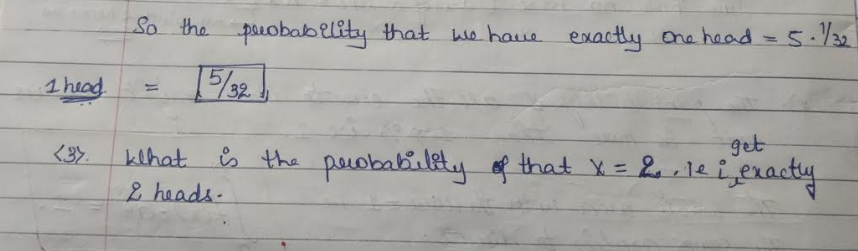 So the probability that we have exactly one head = 5 · 1/32
1 head = 5/32
<3>. What is the probability of that x = 2. ie i, get exactly
2 heads.